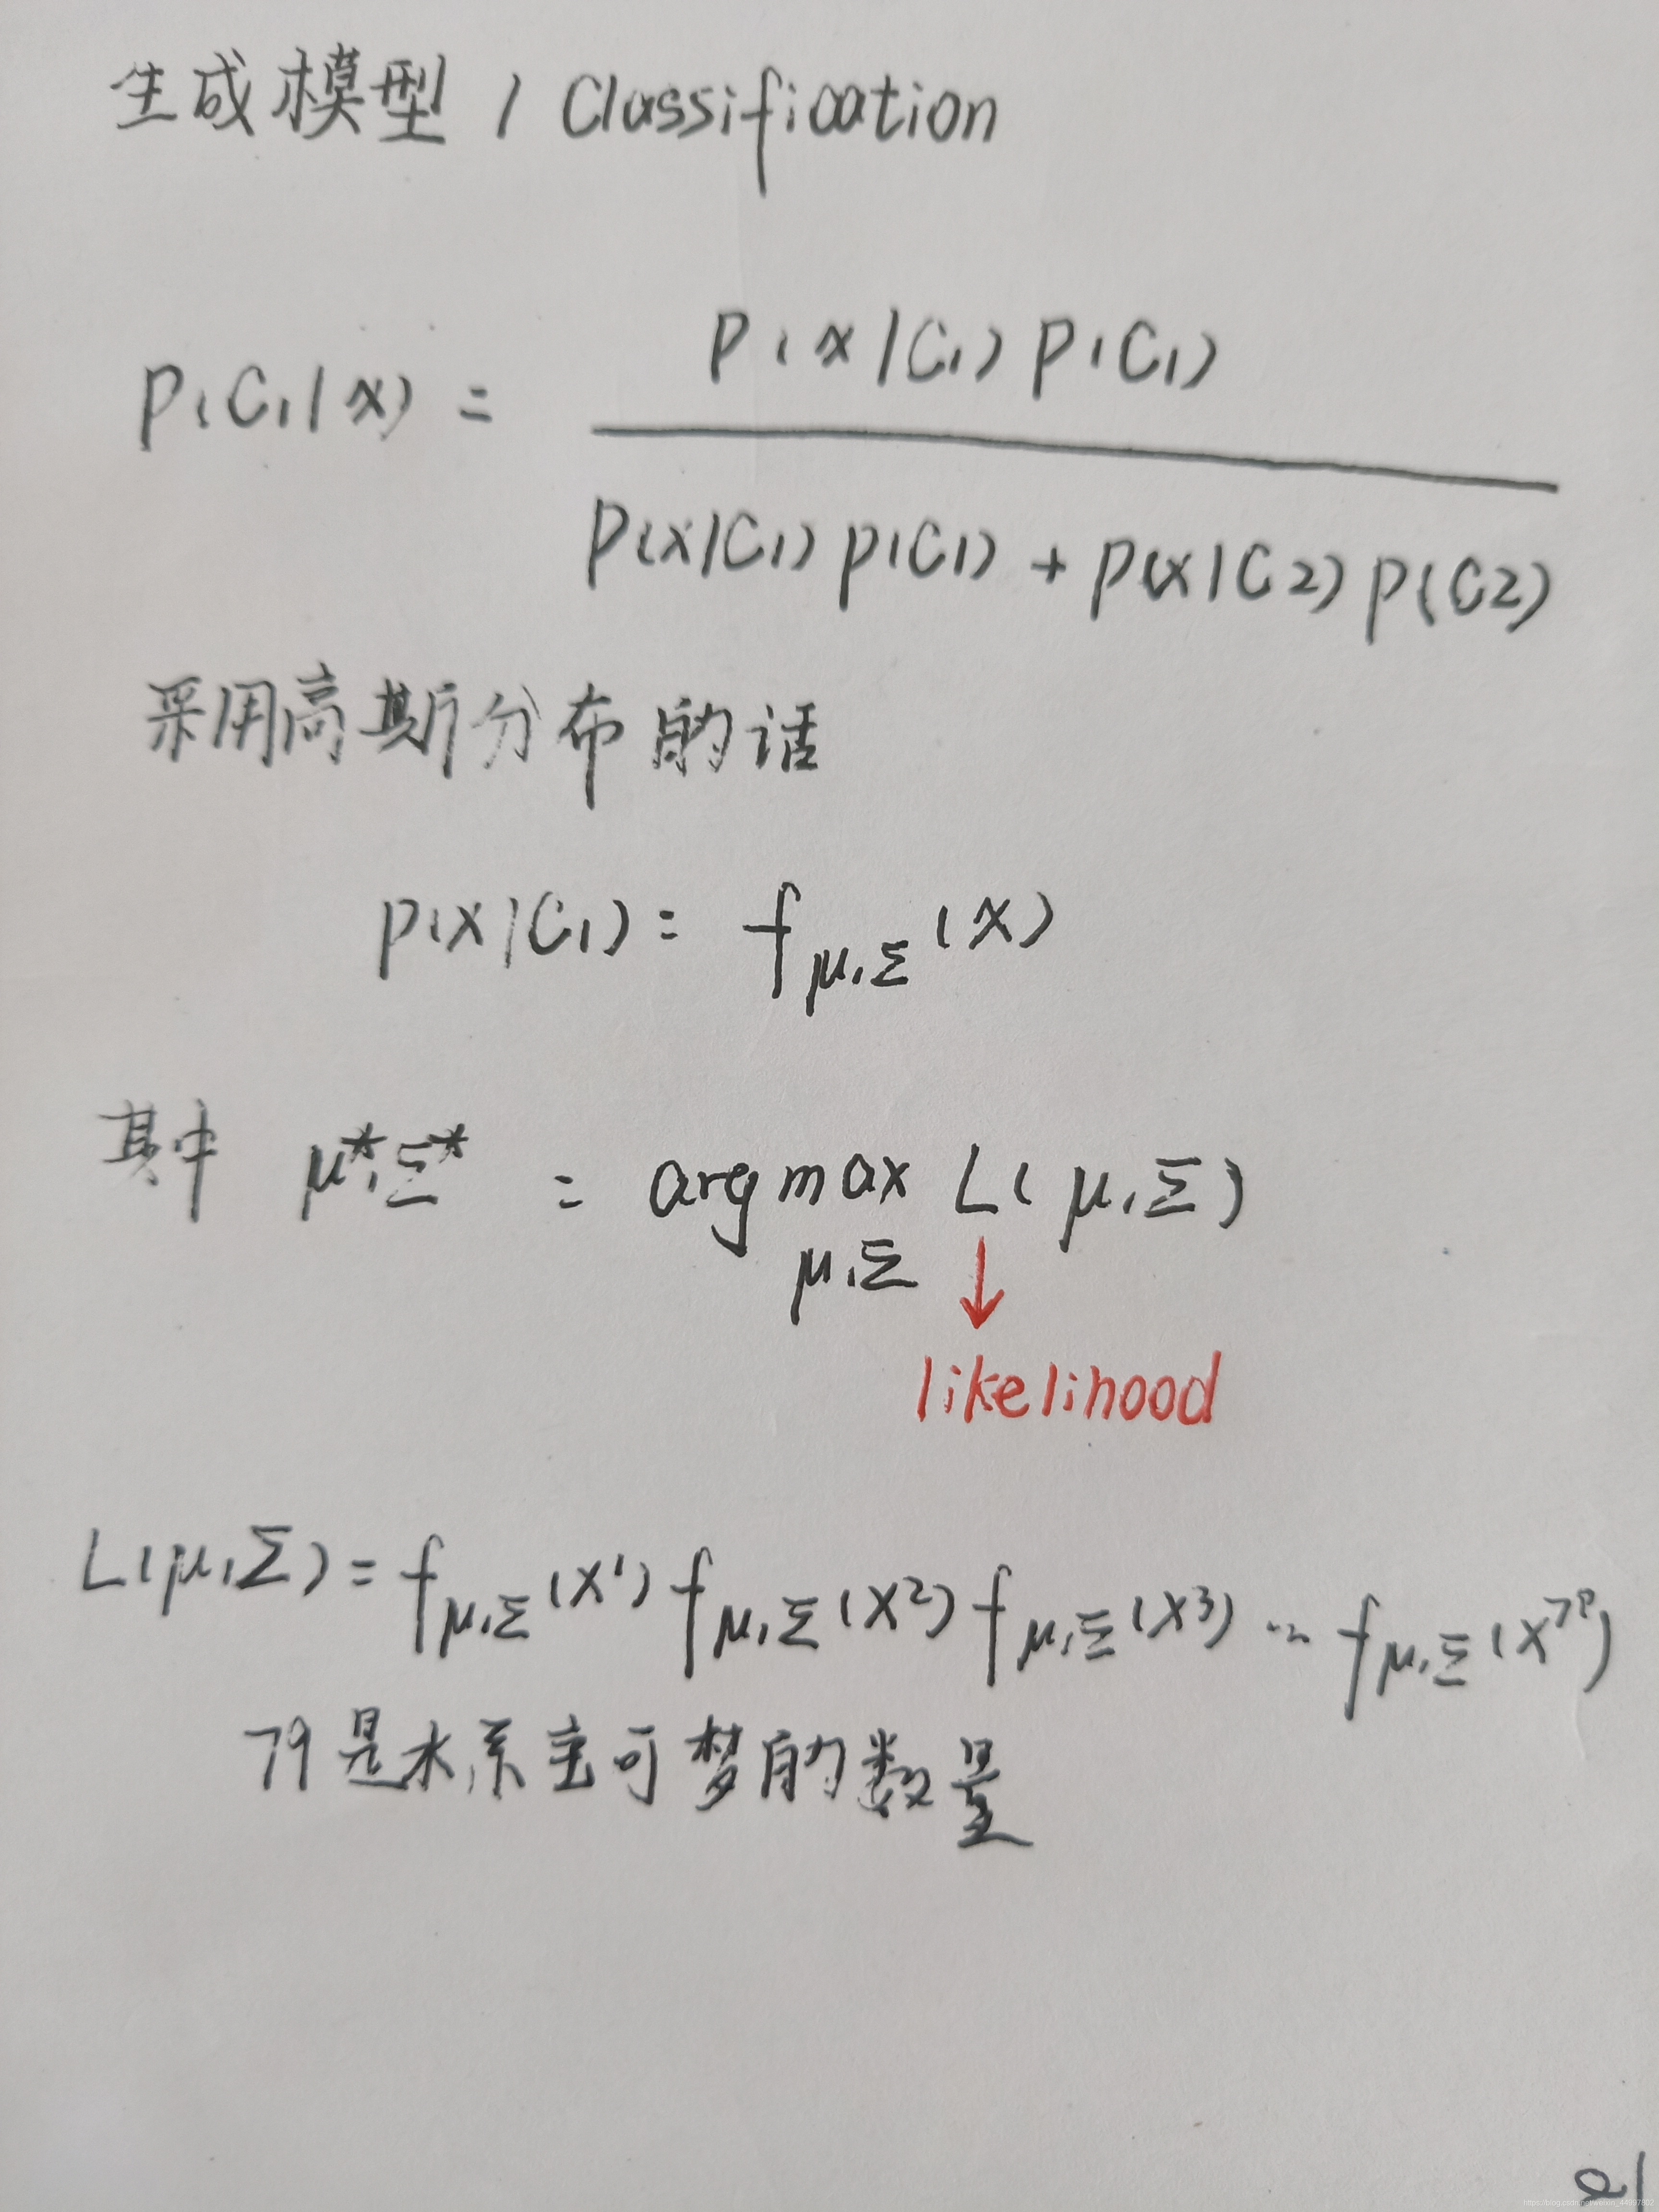 生成模型 / Classification
P(x|C1) P(C1)
P(C1|x) =
P(x|C1) P(C1) + P(x|C2) P(C2)
采用高斯分布的话
P(x|C1) = f μ,Σ (x)
其中 μ*,Σ* = arg max L(μ,Σ)
μ,Σ ↓
likelihood
L(μ,Σ) = f μ,Σ (x¹) f μ,Σ (x²) f μ,Σ (x³) ... f μ,Σ (x⁷⁹)
79是水系宝可梦的数量
https://blog.csdn.net/weixin_44997802